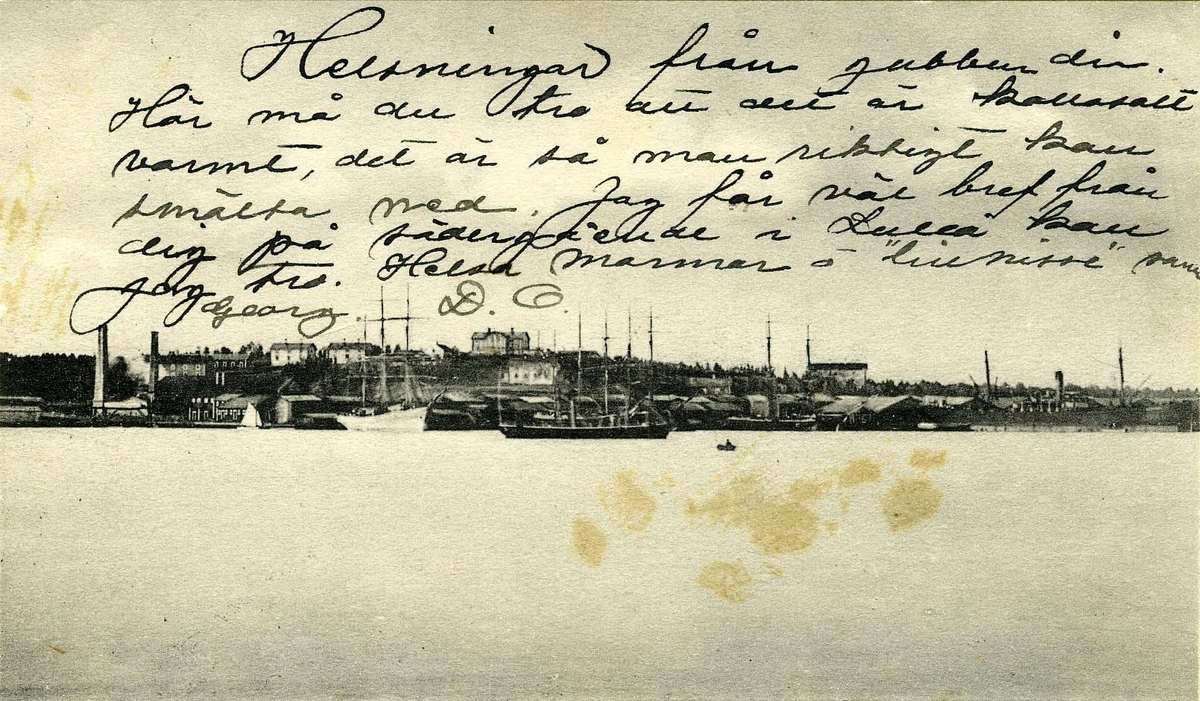 Helsningar från gubben din.
Här må du tro att det är kollosalt
varmt, det är så man riktigt kan
smälta ned. Jag får väl bref från
dig på södergående i Luleå kan
jag tro. Helsa mammar o "lillnisse"
Georg. D. O.